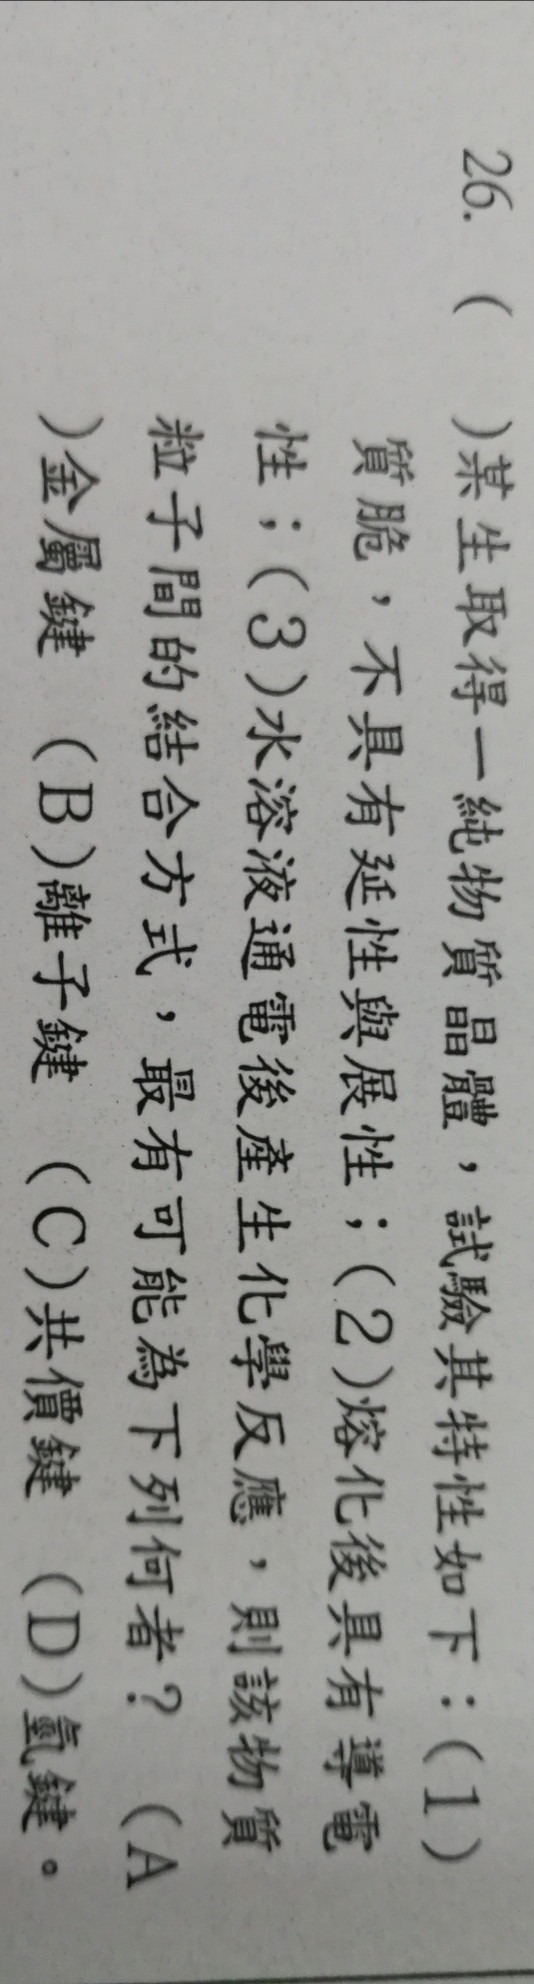 26. (　)某生取得一純物質晶體，試驗其特性如下：(1)
質脆，不具有延性與展性；(2)熔化後具有導電
性；(3)水溶液通電後產生化學反應，則該物質
粒子間的結合方式，最有可能為下列何者？ (A
)金屬鍵 (B)離子鍵 (C)共價鍵 (D)氫鍵。